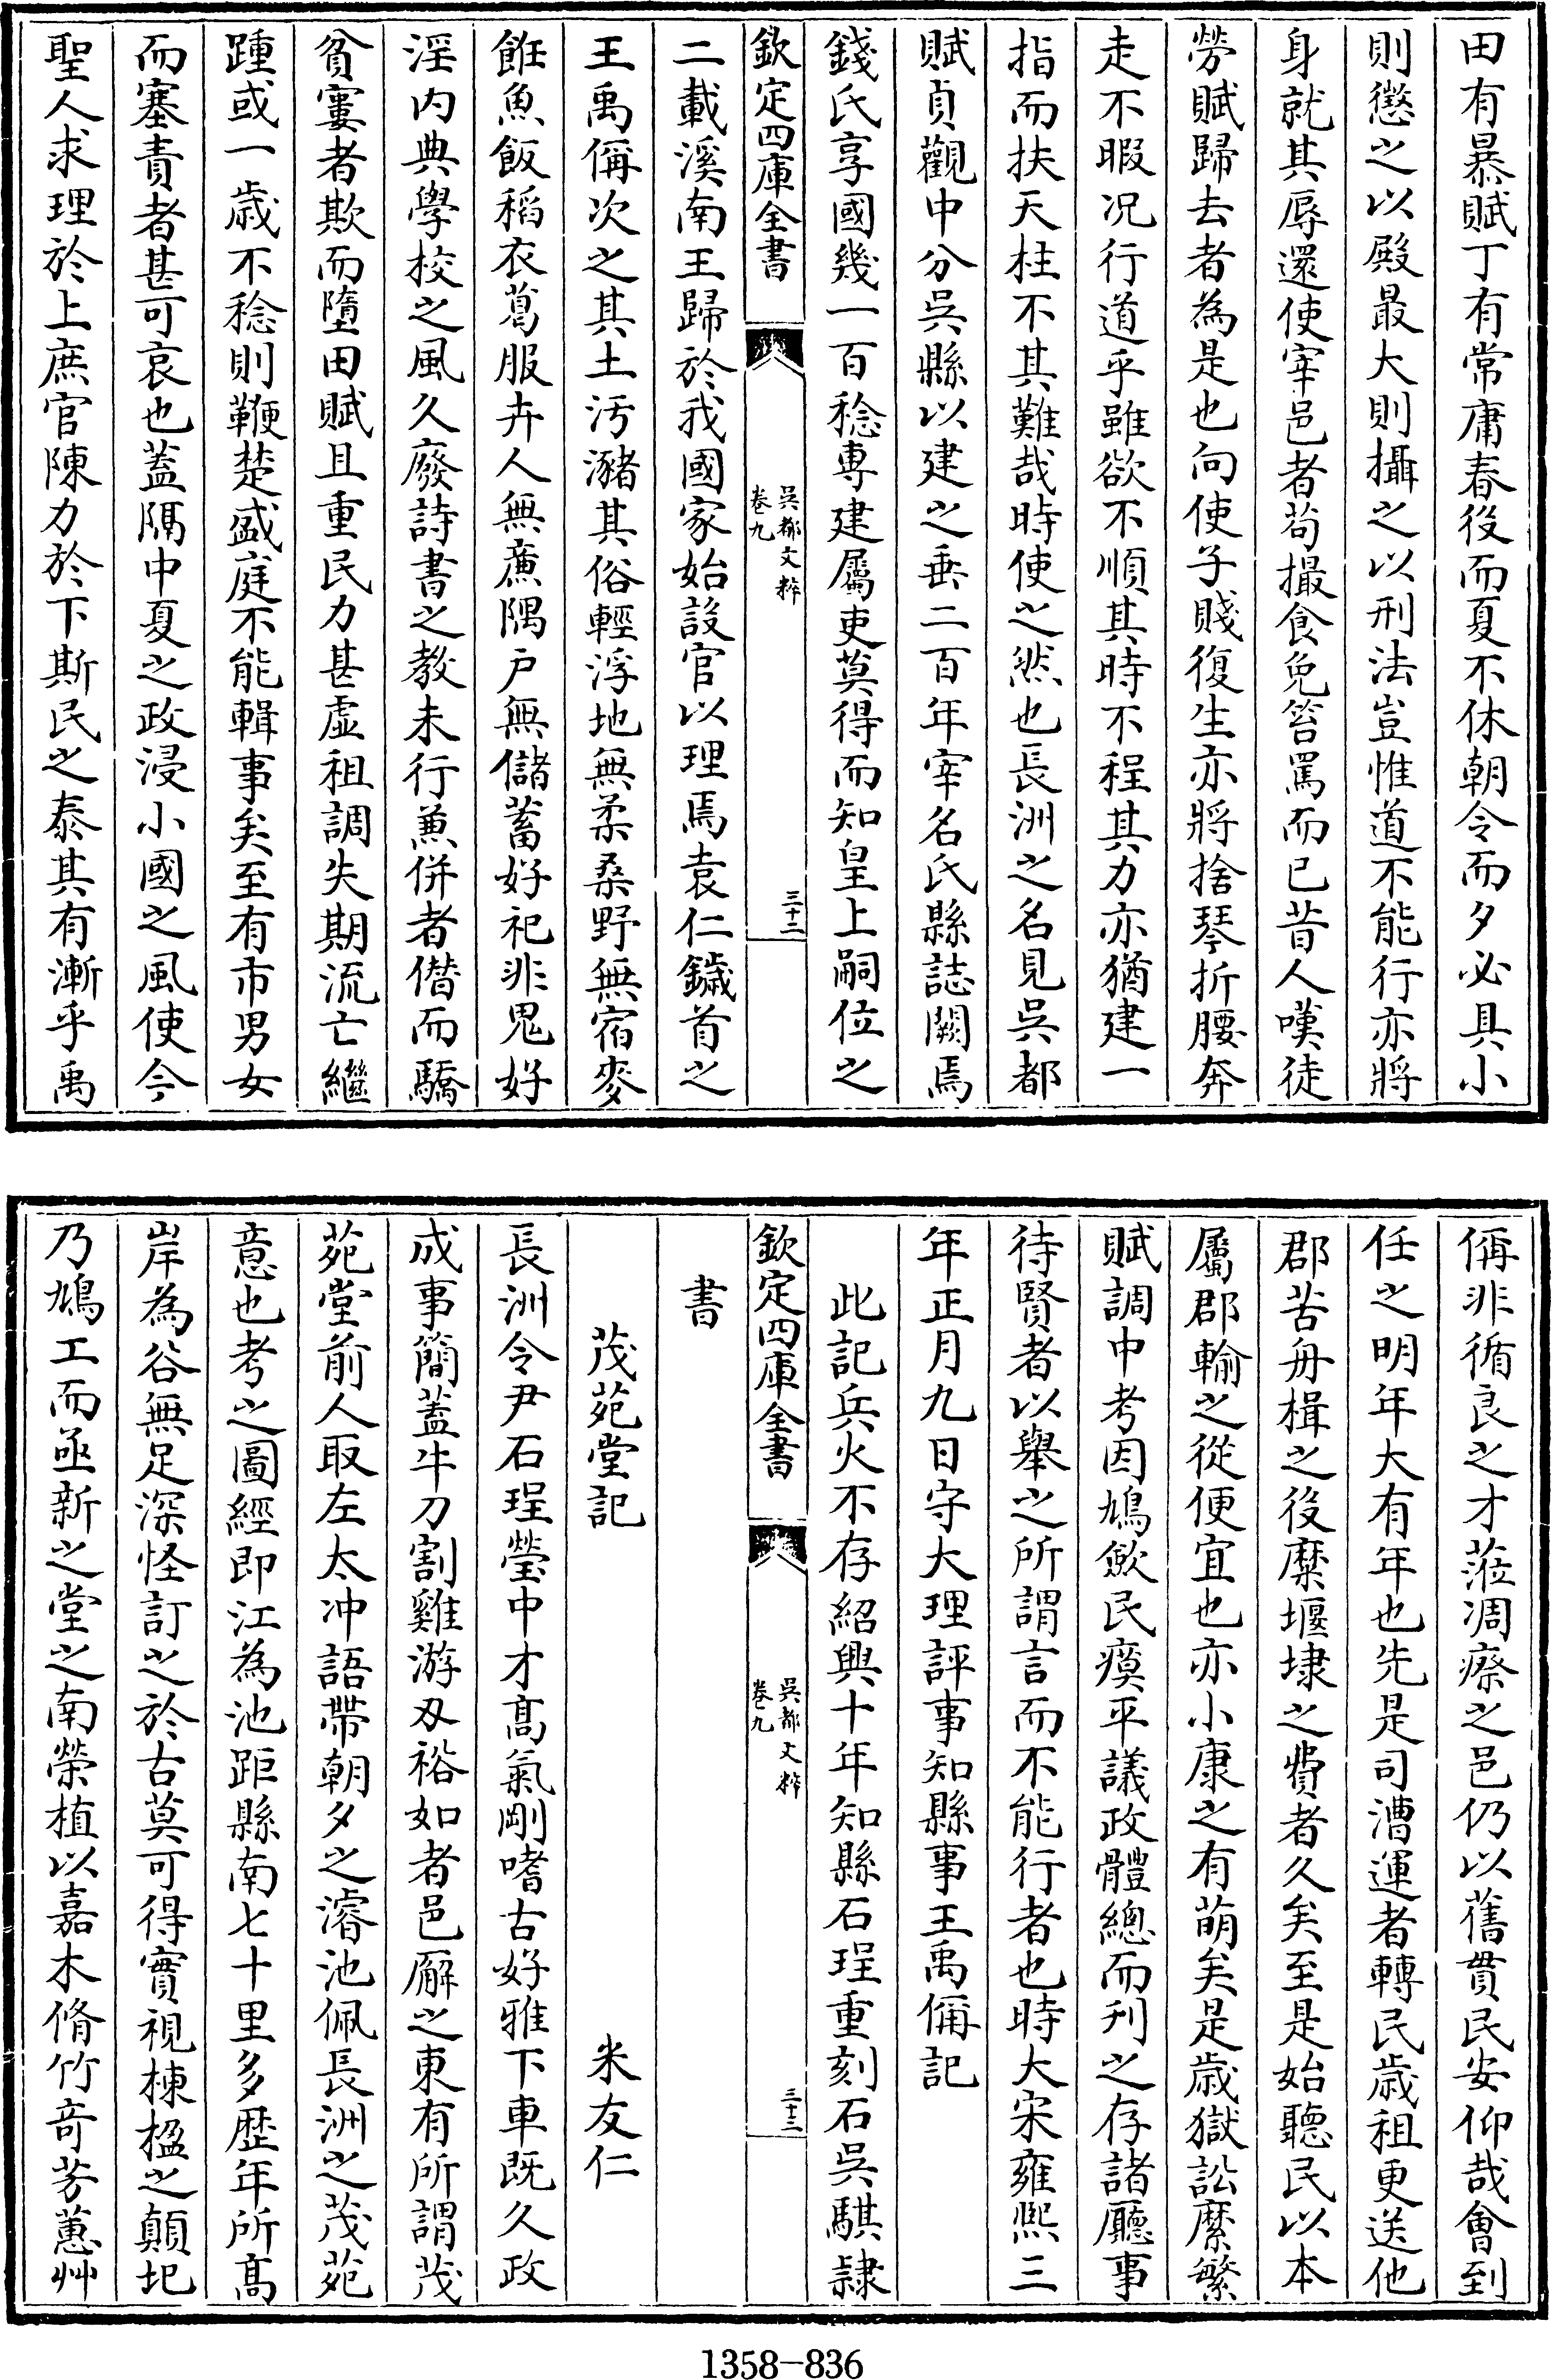 田有暴賦丁有常庸春役而夏不休朝令而夕必具小
則懲之以殿最大則攝之以刑法豈惟道不能行亦將
身就其辱還使宰邑者苟撮食免笞罵而已昔人嘆徒
勞賦歸去者為是也向使子賤復生亦將捨琴折腰奔
走不暇况行道乎雖欲不順其時不程其力亦猶建一
指而扶天柱不其難哉時使之然也長洲之名見吳都
賦貞觀中分吳縣以建之垂二百年宰名氏縣誌闕焉
錢氏享國幾一百稔専建屬吏莫得而知皇上嗣位之
欽定四庫全書
吳都文粹
卷九
三十二
二載溪南王歸於我國家始設官以理焉袁仁鐬首之
王禹偁次之其土汚瀦其俗輕浮地無柔桑野無宿麥
飪魚飯稻衣葛服卉人無亷隅户無儲蓄好祀非鬼好
淫内典學校之風久廢詩書之教未行兼併者僭而驕
貧窶者欺而墮田賦且重民力甚虚租調失期流亡繼
踵或一歳不稔則鞭楚盛庭不能輯事矣至有市男女
而塞責者甚可哀也蓋隔中夏之政浸小國之風使今
聖人求理於上庶官陳力於下斯民之泰其有漸乎禹
偁非循良之才蒞凋瘵之邑仍以舊貫民安仰哉會到
任之明年大有年也先是司漕運者轉民歳租更送他
郡苦舟楫之役糜堰埭之費者久矣至是始聽民以本
屬郡輸之從便宜也亦小康之有萌矣是歳獄訟縻繁
賦調中考因鳩歛民瘼平議政體總而刋之存諸廳事
待賢者以舉之所謂言而不能行者也時大宋雍熙三
年正月九日守大理評事知縣事王禹偁記
此記兵火不存紹興十年知縣石珵重刻石吳騏隷
欽定四庫全書
吳都文粹
卷九
三十三
書
茂苑堂記 米友仁
長洲令尹石珵瑩中才髙氣剛嗜古好雅下車既久政
成事簡蓋牛刀割雞游刃裕如者邑廨之東有所謂茂
苑堂前人取左太冲語帶朝夕之濬池佩長洲之茂苑
意也考之圖經即江為池距縣南七十里多歴年所髙
岸為谷無足深怪訂之於古莫可得實視棟楹之顛圯
乃鳩工而亟新之堂之南榮植以嘉木脩竹竒芳蕙艸
1358-836